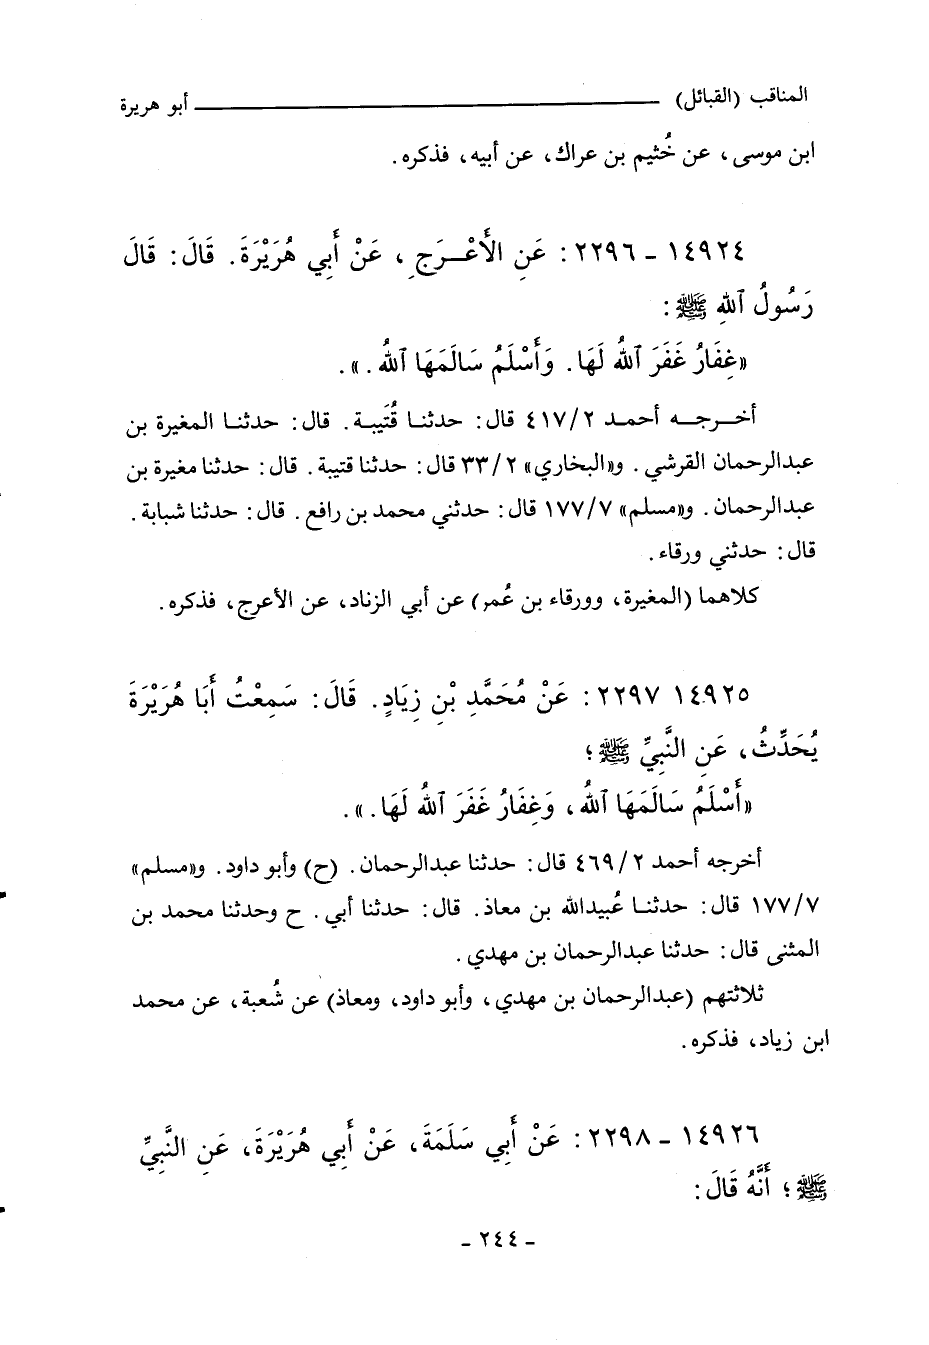 المناقب (القبائل) ــــــــــــــــــــ أبو هريرة
ابن موسى، عن خُثيم بن عراك، عن أبيه، فذكره.
١٤٩٢٤ - ٢٢٩٦: عَنِ الأَعْـرَجِ، عَنْ أَبِي هُرَيْرَةَ. قَالَ: قَالَ
رَسُولُ ٱللهِ ﷺ:
«غِفَارُ غَفَرَ ٱللهُ لَهَا. وَأَسْلَمُ سَالَمَهَا ٱللهُ.».
أخـرجـه أحمـد ٤١٧/٢ قال: حدثنـا قُتَيبـة. قال: حدثنـا المغيرة بن
عبدالرحمان القرشي. و«البخاري» ٣٣/٢ قال: حدثنا قتيبة. قال: حدثنا مغيرة بن
عبدالرحمان. و«مسلم» ١٧٧/٧ قال: حدثني محمد بن رافع. قال: حدثنا شبابة.
قال: حدثني ورقاء.
كلاهما (المغيرة، وورقاء بن عُمر) عن أبي الزناد، عن الأعرج، فذكره.
١٤٩٢٥ ٢٢٩٧: عَنْ مُحَمَّدِ بْنِ زِيَادٍ. قَالَ: سَمِعْتُ أَبَا هُرَيْرَةَ
يُحَدِّثُ، عَنِ النَّبِيِّ ﷺ؛
«أَسْلَمُ سَالَمَهَا ٱللهُ، وَغِفَارُ غَفَرَ ٱللهُ لَهَا.».
أخرجه أحمد ٤٦٩/٢ قال: حدثنا عبدالرحمان. (ح) وأبو داود. و«مسلم»
١٧٧/٧ قال: حدثنـا عُبيدالله بن معاذ. قال: حدثنا أبي. ح وحدثنا محمد بن
المثنى قال: حدثنا عبدالرحمان بن مهدي.
ثلاثتهم (عبدالرحمان بن مهدي، وأبو داود، ومعاذ) عن شُعبة، عن محمد
ابن زياد، فذكره.
١٤٩٢٦ - ٢٢٩٨: عَنْ أَبِي سَلَمَةَ، عَنْ أَبِي هُرَيْرَةَ، عَنِ النَّبِيِّ
ﷺ؛ أَنَّهُ قَالَ:
- ٢٤٤ -